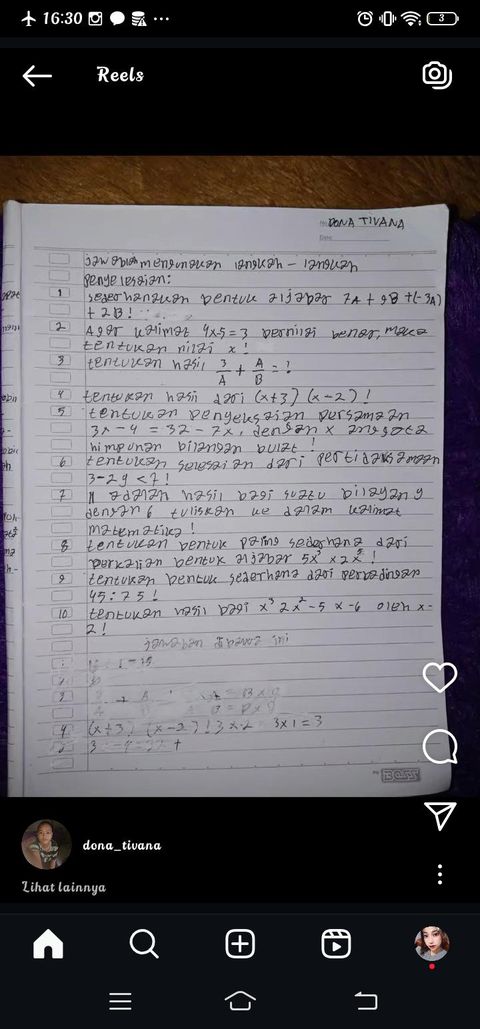 16:30
3
Reels
DONA TIVANA
Date
penyelesaian:
1 sederhanakan bentuk aljabar 7A + 9B +(-3A)
+ 2B!
2 Agar kalimat 4x-5=3 bernilai benar, maka
tentukan nilai x!
3 tentukan hasil 3/A + A/B = !
4 tentukan hasil dari (x+3) (x-2)!
5 tentukan penyelesaian persamaan
3x-4 = 32-7x, dengan x anggota
himpunan bilangan bulat!
6 tentukan selesaian dari pertidaksamaan
3-2y <7!
7 adalah hasil bagi suatu bilangan y
dengan 6 tuliskan ke dalam kalimat
matematika!
8 tentukan bentuk paling sederhana dari
perkalian bentuk aljabar
9 tentukan bentuk sederhana dari perbandingan
45:75!
10 tentukan hasil bagi x³ 2x²-5x-6 oleh x-
2!
jawaban dibawa ini
4 (x+3) (x-2)! 3x2 3x1=3
BOSS
dona_tivana
Lihat lainnya